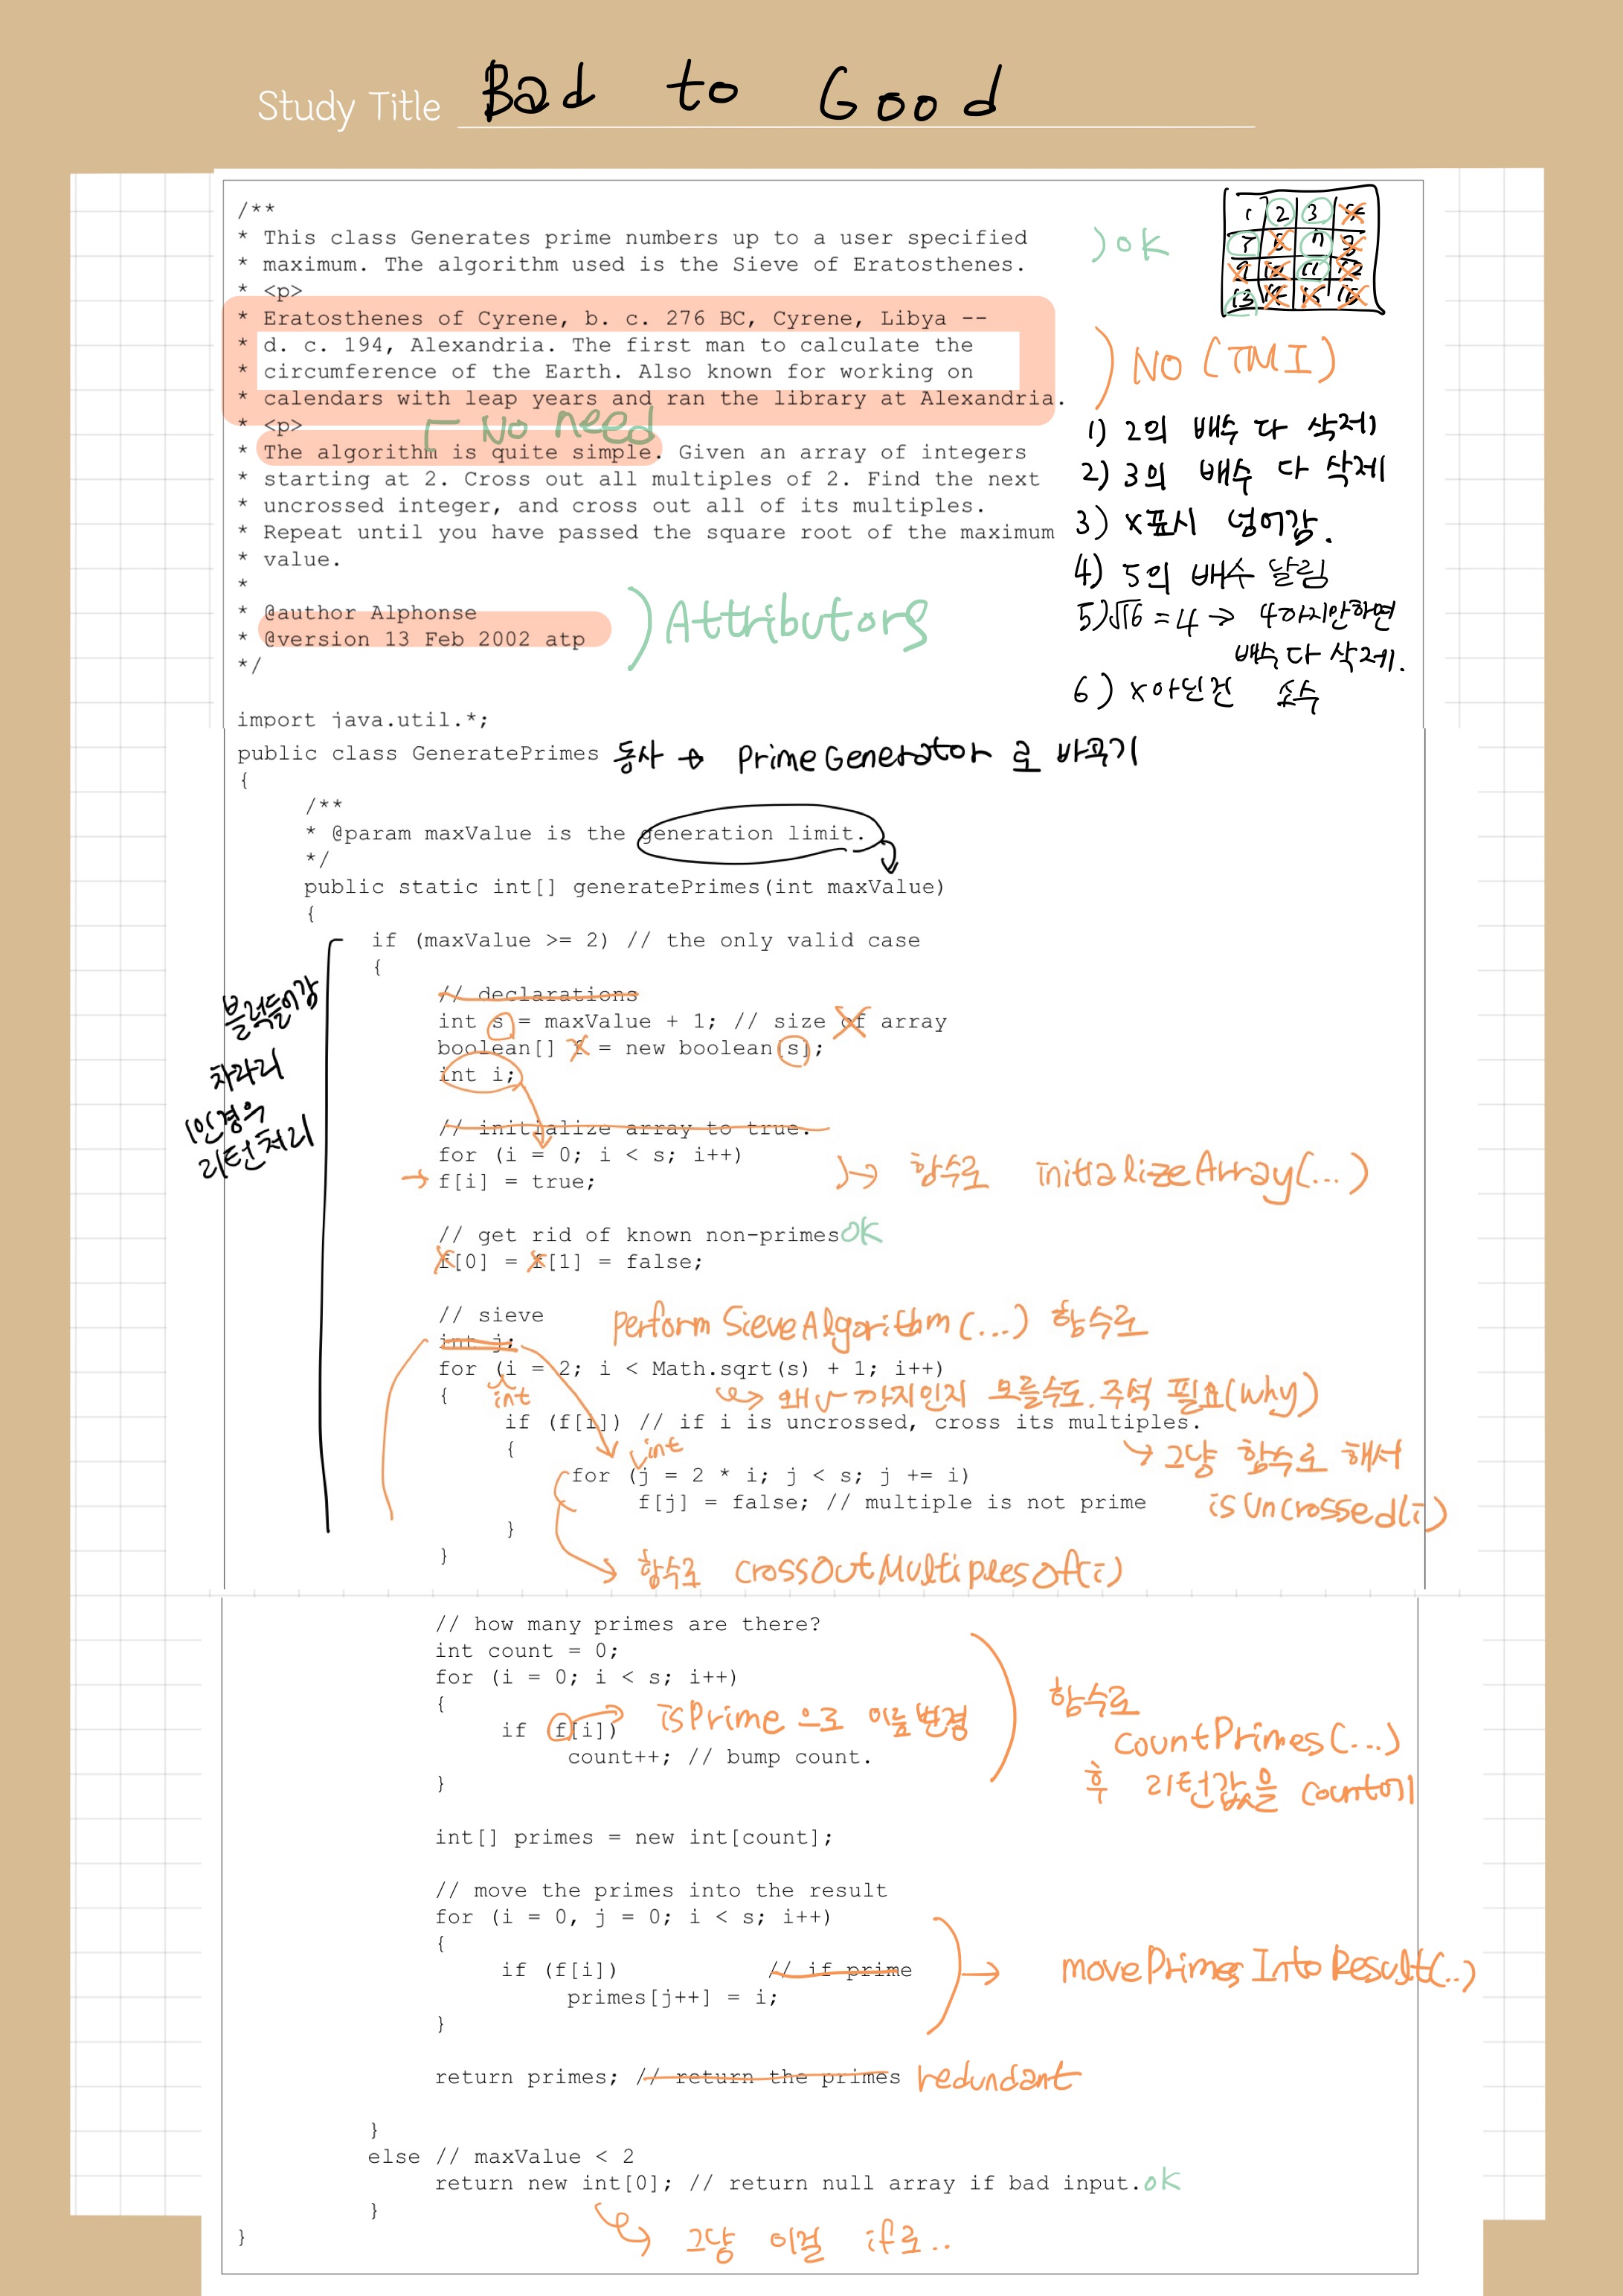 Study Title Bad to Good
/**
* This class Generates prime numbers up to a user specified
* maximum. The algorithm used is the Sieve of Eratosthenes.
) OK
* <p>
* Eratosthenes of Cyrene, b. c. 276 BC, Cyrene, Libya --
* d. c. 194, Alexandria. The first man to calculate the
* circumference of the Earth. Also known for working on
* calendars with leap years and ran the library at Alexandria.
) NO (TMI)
* <p>
No need
* The algorithm is quite simple. Given an array of integers
* starting at 2. Cross out all multiples of 2. Find the next
* uncrossed integer, and cross out all of its multiples.
* Repeat until you have passed the square root of the maximum
* value.
*
* @author Alphonse
* @version 13 Feb 2002 atp
*/
) Attributors
1 2 3 4
5 6 7 8
9 10 11 12
13 14 15 16
1) 2의 배수 다 삭제
2) 3의 배수 다 삭제
3) x표시 넘어감.
4) 5의 배수 달림
5) √16 = 4 → 4까지만하면
배수 다 삭제.
6) x아닌건 소수
import java.util.*;
public class GeneratePrimes 동사 → PrimeGenerator 로 바꾸기
{
/**
* @param maxValue is the generation limit.
*/
public static int[] generatePrimes(int maxValue)
{
if (maxValue >= 2) // the only valid case
{
블럭들어감
차라리
1인경우
리턴처리
// declarations
int s = maxValue + 1; // size of array
boolean[] f = new boolean[s];
int i;
// initialize array to true.
for (i = 0; i < s; i++)
f[i] = true;
)→ 함수로 initializeArray(...)
// get rid of known non-primes OK
f[0] = f[1] = false;
// sieve
performSieveAlgorithm(...) 함수로
int j;
for (i = 2; i < Math.sqrt(s) + 1; i++)
int
{
→ 왜 √ 까지인지 모를수도. 주석 필요(why)
if (f[i]) // if i is uncrossed, cross its multiples.
→ 그냥 함수로 해서
isUncrossed(i)
{
int
for (j = 2 * i; j < s; j += i)
f[j] = false; // multiple is not prime
}
}
→ 함수로 crossOutMultiplesOf(i)
// how many primes are there?
int count = 0;
for (i = 0; i < s; i++)
{
if (f[i])
→ isPrime 으로 이름변경
count++; // bump count.
}
함수로
countPrimes(...)
후 리턴값을 count에
int[] primes = new int[count];
// move the primes into the result
for (i = 0, j = 0; i < s; i++)
{
if (f[i]) // if prime
primes[j++] = i;
}
→ movePrimesIntoResult(..)
return primes; // return the primes redundant
}
else // maxValue < 2
return new int[0]; // return null array if bad input. OK
}
→ 그냥 이걸 if로..
}